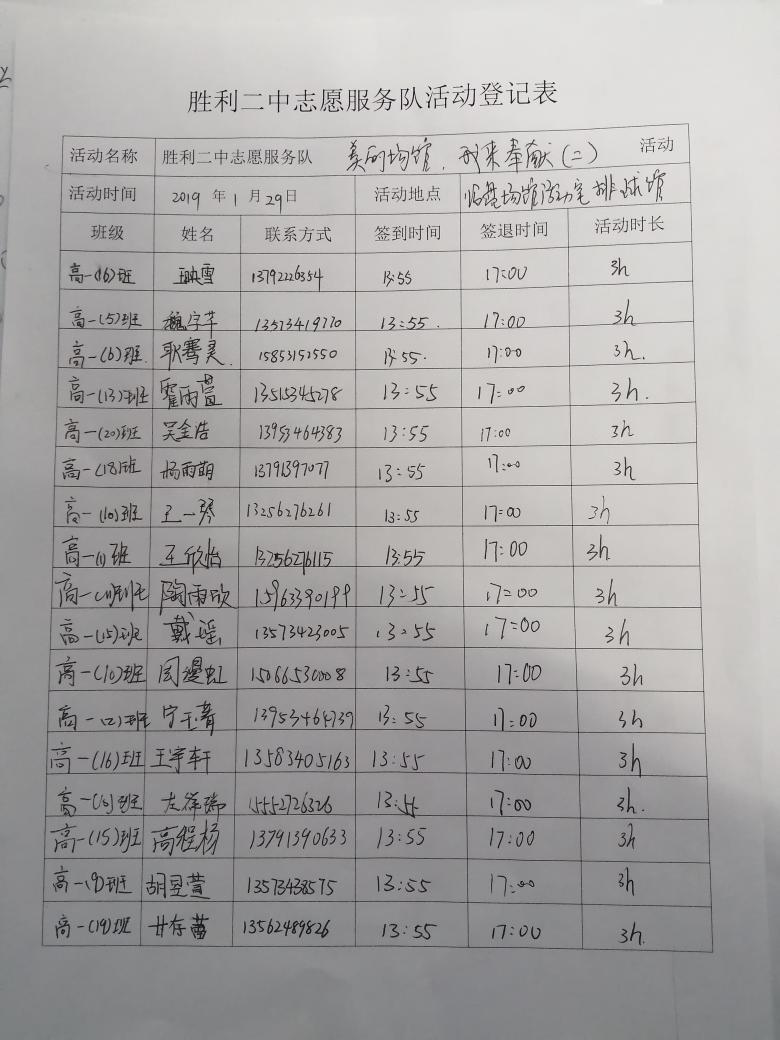 胜利二中志愿服务队活动登记表
活动名称 胜利二中志愿服务队 美丽场馆,我来奉献(二) 活动
活动时间 2019 年 1 月 29 日 活动地点 临盘场馆活动室排球馆
班级 姓名 联系方式 签到时间 签退时间 活动时长
高一(16)班 王映雪 13792226354 13:55 17:00 3h
高一(5)班 魏宇芊 13573419770 13:55. 17:00 3h
高一(6)班. 耿骞灵 15853152550 13:55. 17:00 3h.
高一(13)班 霍雨萱 13515345278 13:55 17:00 3h.
高一(20)班 吴金浩 13953464383 13:55 17:00 3h
高一(18)班 杨雨萌 13791397077 13:55 17:00 3h
高一(10)班 王一琴 13256276261 13:55 17:00 3h
高一(1)班 王欣怡 13256276115 13:55 17:00 3h
高一 班 陶雨欣 15963390199 13:55 17:00 3h
高一(15)班 戴瑶 13573423005 13:55 17:00 3h
高一(10)班 周缦虹 15066530008 13:55 17:00 3h
高一(2)班 宁玉菁 13953464739 13:55 17:00 3h
高一(16)班 王宇轩 13583405163 13:55 17:00 3h
高一 班 左祥瑞 15552726326 13:55 17:00 3h.
高一(15)班 高程杨 13791390633 13:55 17:00 3h
高一(9)班 胡昱萱 13573438575 13:55 17:00 3h
高一(19)班 甘存蕾 13562489826 13:55 17:00 3h.